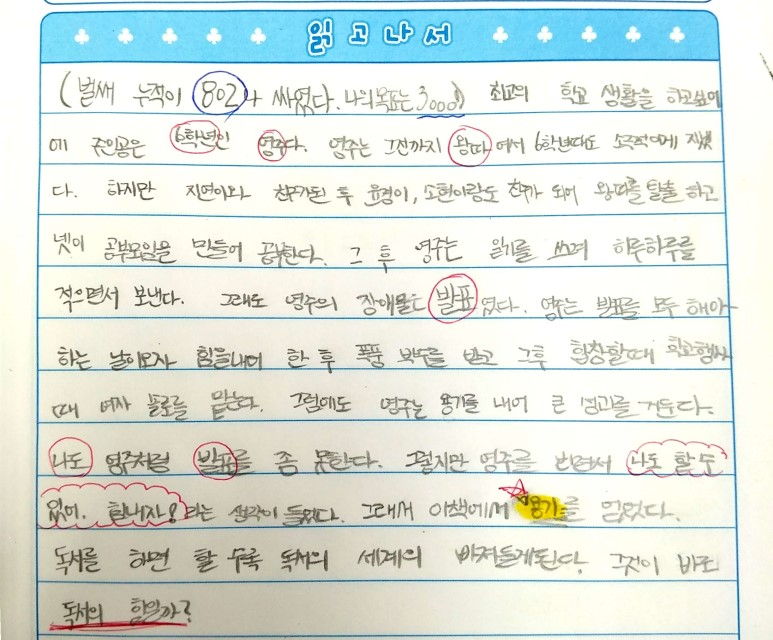 읽고나서
(벌써 누적이 802나 싸였다. 나의목표는 3000) 최고의 학교 생활을 하고싶어
에 주인공은 6학년인 영주다. 영주는 그전까지 왕따 에서 6학년때도 소극적이게 지냈
다. 하지만 지연이와 친구가된 후 윤경이, 소현이랑도 친구가 되어 왕따를 탈출 하고
넷이 공부모임을 만들어 공부한다. 그 후 영주는 일기를 쓰며 하루하루를
적으면서 보낸다. 그래도 영주의 장애물은 발표 였다. 영주는 발표를 모두 해야
하는 날이오자 힘을내어 한 후 폭풍 박수를 받고 그후 합창할때 학교행사
때 여자 솔로를 맡는다. 그럼에도 영주는 용기를 내어 큰 성과를 거둔다.
나도 영주처럼 발표를 좀 못한다. 그렇지만 영주를 보면서 나도 할 수
있어. 힘내자! 라는 생각이 들었다. 그래서 이책에서 용기를 얻었다.
독서를 하면 할 수록 독서의 세계의 빠져들게된다. 그것이 바로
독서의 힘일까?